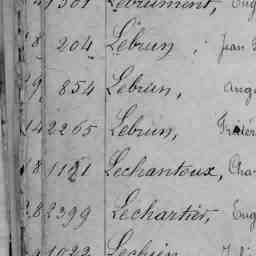 1301 Lebrument, Eug
204 Lebrun, Jean
854 Lebrun, Aug
2265 Lebrun, Frédér
1121 Lechantoux, Cha
2399 Lechartier, Eug
1023 Lechien,